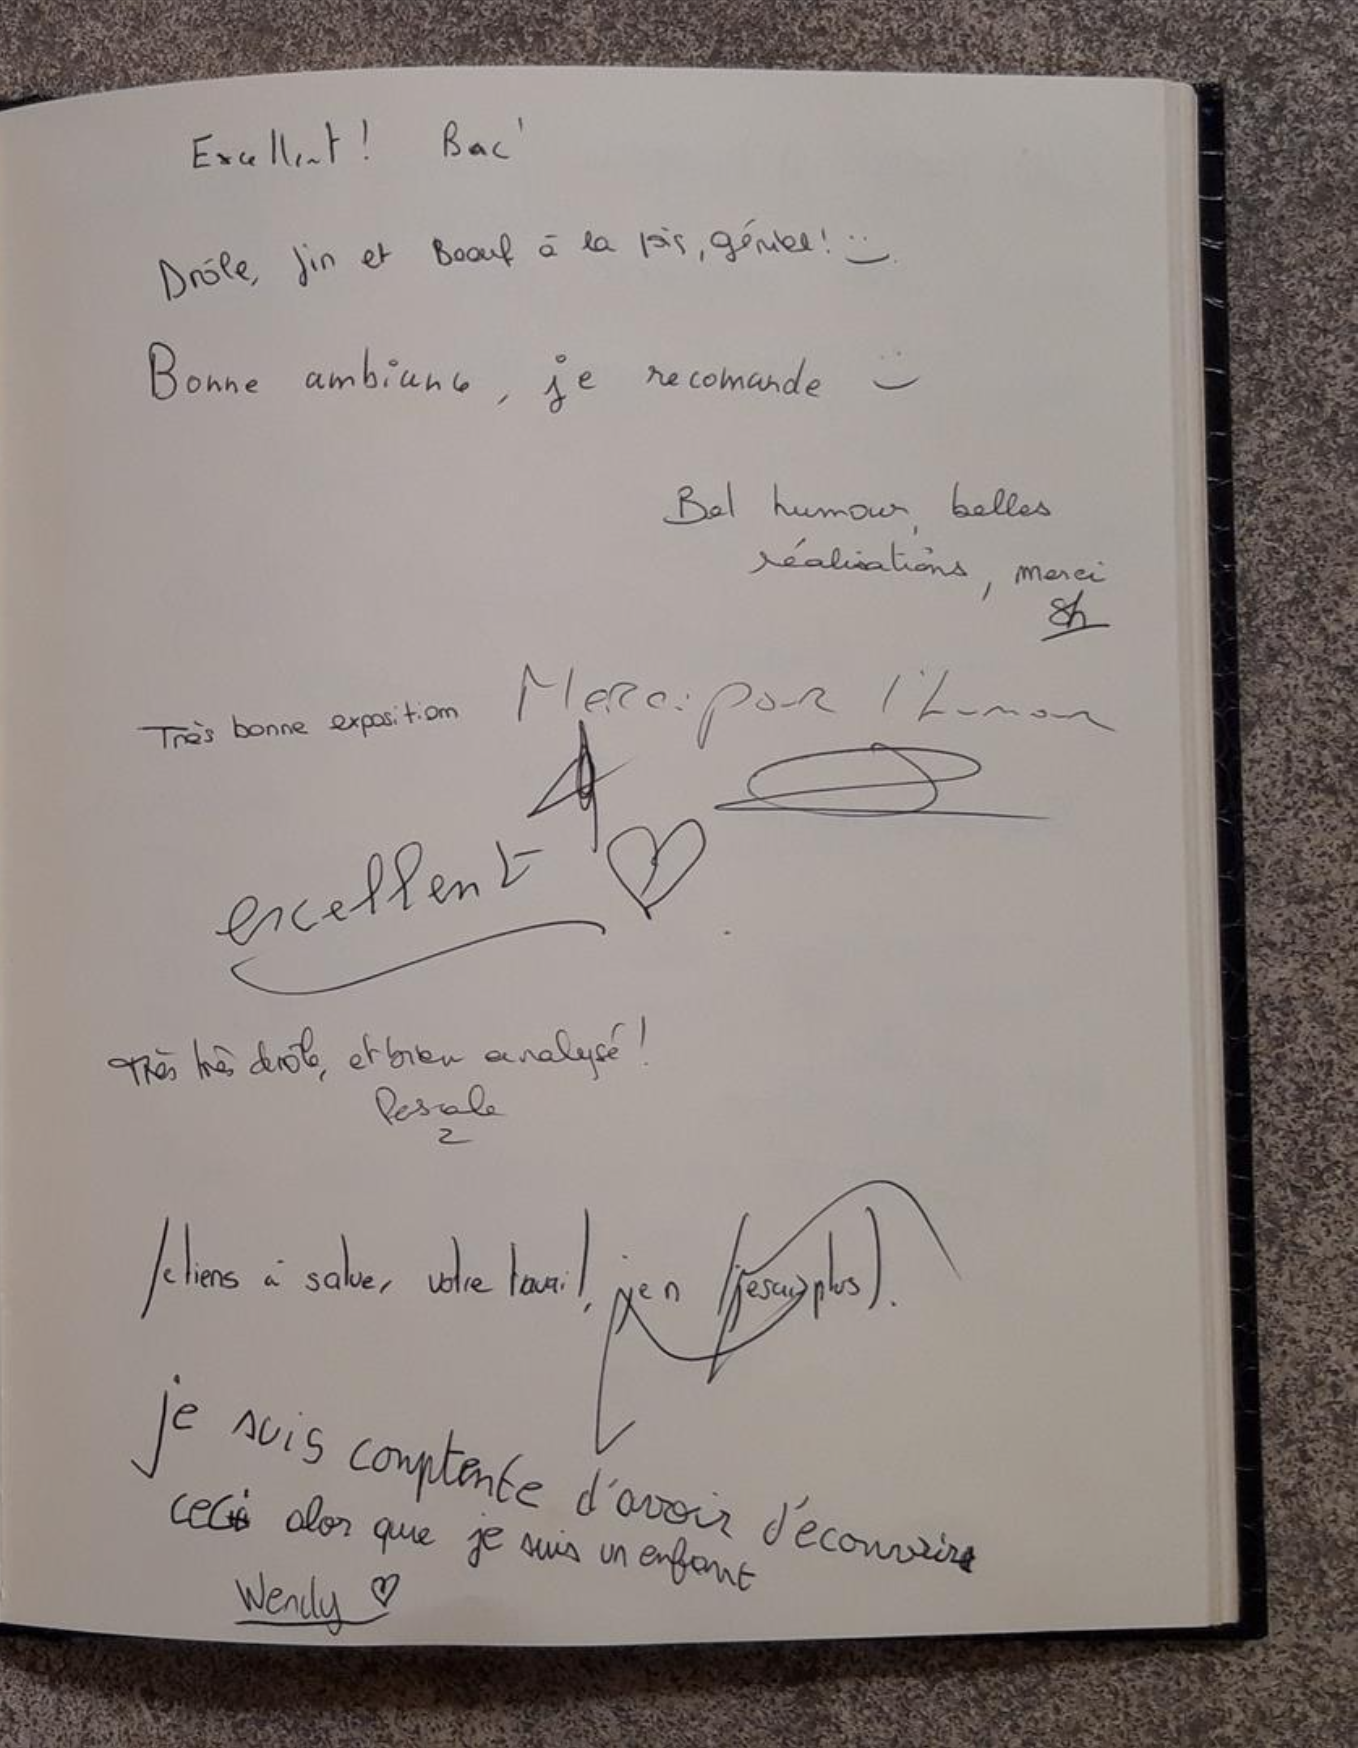 Excellent ! Bac'
Drôle, fin et Boeuf à la fois, géniale ! :)
Bonne ambiance, je recomande :)
Bel humour, belles
réalisations, merci
Très bonne exposition
Merci pour l'humour
excellent
Très très drôle, et bien analysé !
Pascale
Je tiens à saluer votre travail, j'en (jesuisplus).
je suis comptente d'avoir d'écouvrire
ceci alor que je suis un enfant
Wendy